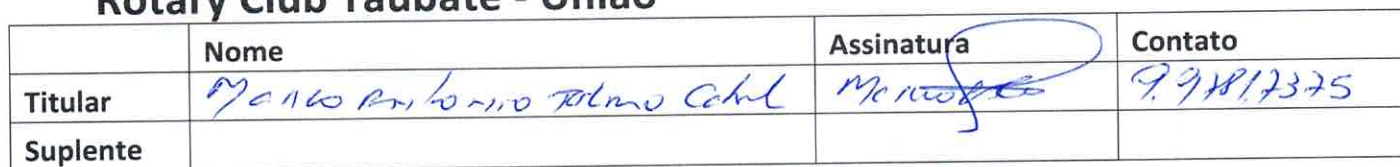 Rotary Club Taubaté - União
Nome Assinatura Contato
Titular Marco Antonio Cabral
Suplente